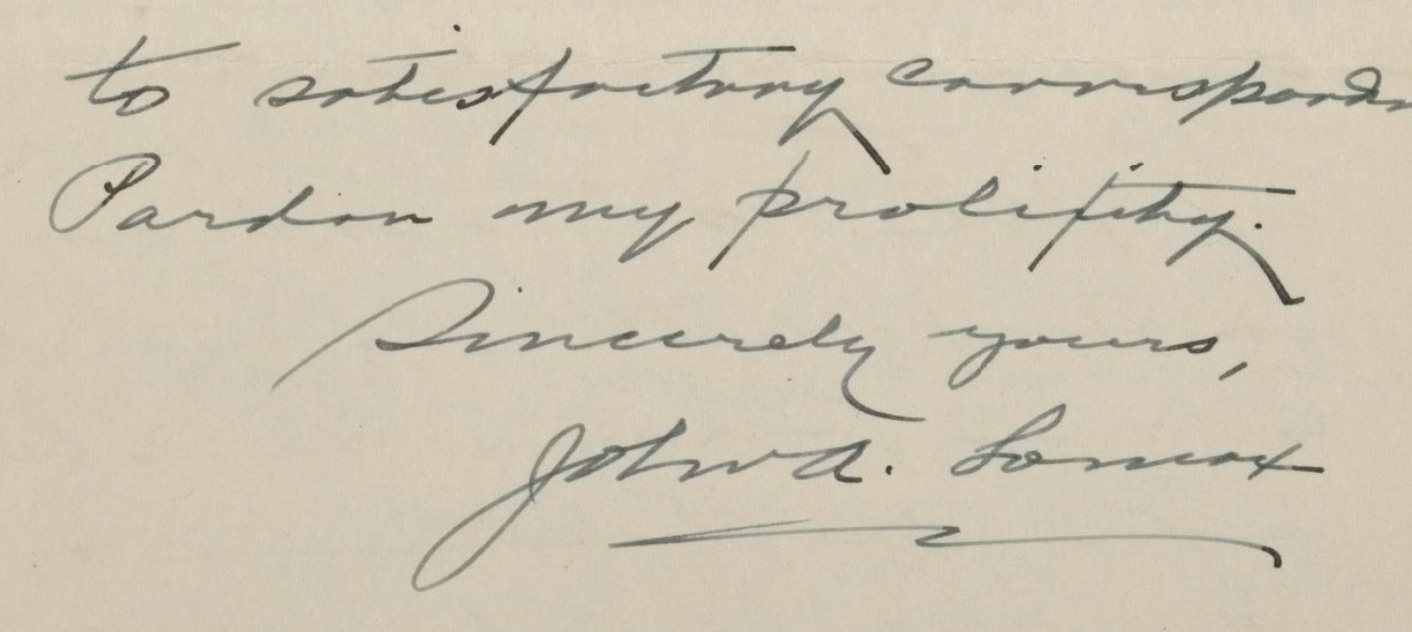 to satisfactory
Pardon my prolixity.
Sincerely yours,
John A. Lomax